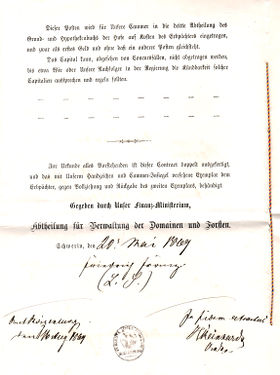 Dieser Posten wird für Unsere Cammer in die dritte Abtheilung des
Grund- und Hypothekenbuchs der Hufe auf Kosten des Erbpächters eingetragen,
und zwar als erstes Geld und ohne daß ein anderer Posten gleichsteht.
Das Capital kann, abgesehen von Concursfällen, nicht abgetragen werden,
bis etwa Wir oder Unsre Nachfolger in der Regierung die Kündbarkeit solcher
Capitalien aussprechen und regeln sollten.
Zur Urkunde alles Vorstehenden ist dieser Contract doppelt ausgefertigt,
und das mit Unserm Handzeichen und Cammer-Insiegel versehene Exemplar dem
Erbpächter, gegen Vollziehung und Rückgabe des zweiten Exemplars, behändigt
Gegeben durch Unser Finanz-Ministerium,
Abtheilung für Verwaltung der Domainen und Forsten.
Schwerin, den 20. Mai
Friedrich Franz
(L. S.)